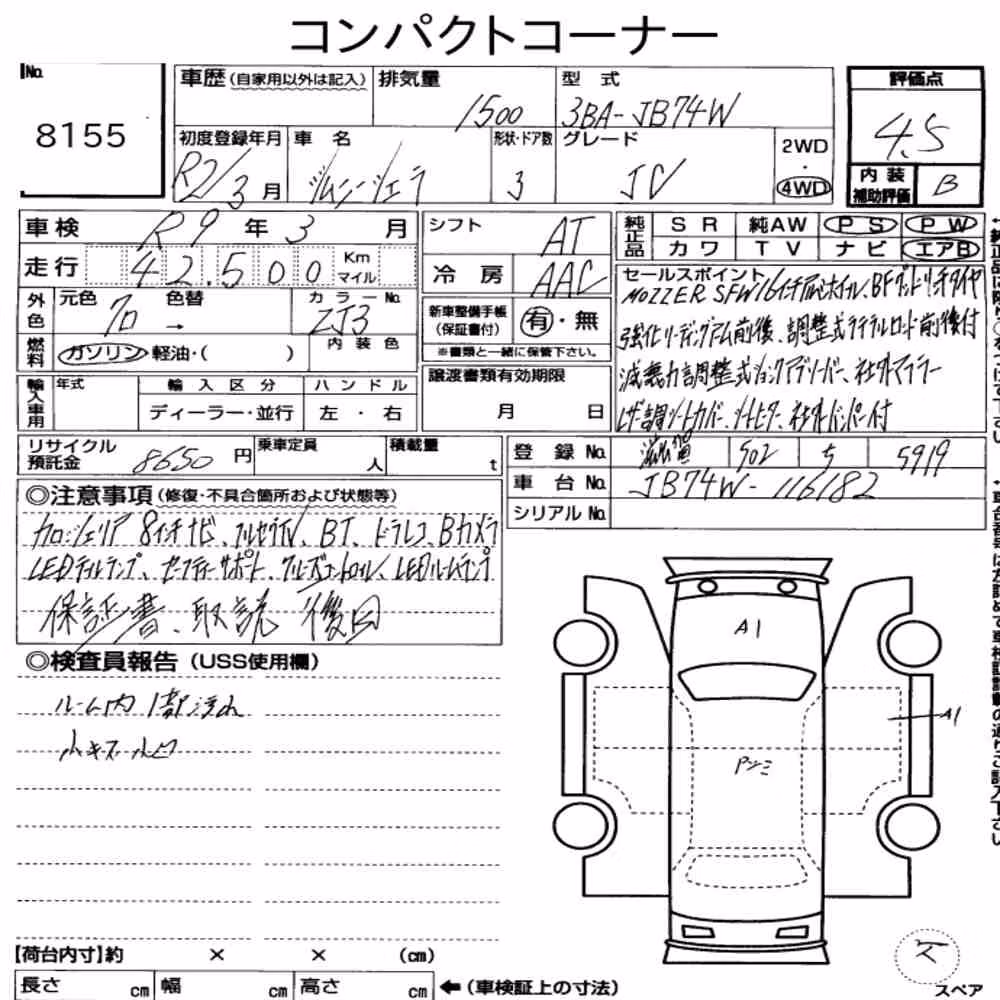 コンパクトコーナー
No. 8155
車歴(自家用以外は記入) 排気量 1500 型 式 3BA-JB74W
初度登録年月 R2/3月 車 名 ジムニーシエラ 形状・ドア数 3 グレード JC 2WD・4WD
評価点 4.5
内装補助評価 B
車検 R9年3月
走行 42,500 Km マイル
シフト AT
冷房 AAC
純正品 SR 純AW PS PW
カワ TV ナビ エアB
外色 元色 色替 カラーNo. ZJ3
クロ →
内装色
燃料 ガソリン・軽油・( )
新車整備手帳(保証書付) 有・無
※書類と一緒に保管下さい。
セールスポイント
MOZZER SFW 16インチアルミホイル、BFグッドリッチタイヤ
強化リーディングアーム前後、調整式ラテラルロッド前後付
減衰力調整式ショックアブソーバー、社外マフラー
レザー調シートカバー、シートヒーター、社外バンパー付
輸入車用 年式 輸入区分 ハンドル
ディーラー・並行 左・右
譲渡書類有効期限
月 日
リサイクル預託金 8650円 乗車定員 人 積載量 t
登録No. 滋賀 502 5 5919
車台No. JB74W-116182
シリアルNo.
◎注意事項(修復・不具合箇所および状態等)
カロッツェリア 8インチナビ、フルセグTV、BT、ドラレコ、Bカメラ
LEDテールランプ、セーフティーサポート、クルーズコントロール、LEDルームランプ
保証書、取説 後日
◎検査員報告(USS使用欄)
ルーム内 1部汚れ
小キズ小凹
A1
A1
Pシミ
【荷台内寸】約 × × (cm)
長さ cm 幅 cm 高さ cm ←(車検証上の寸法)
スペア